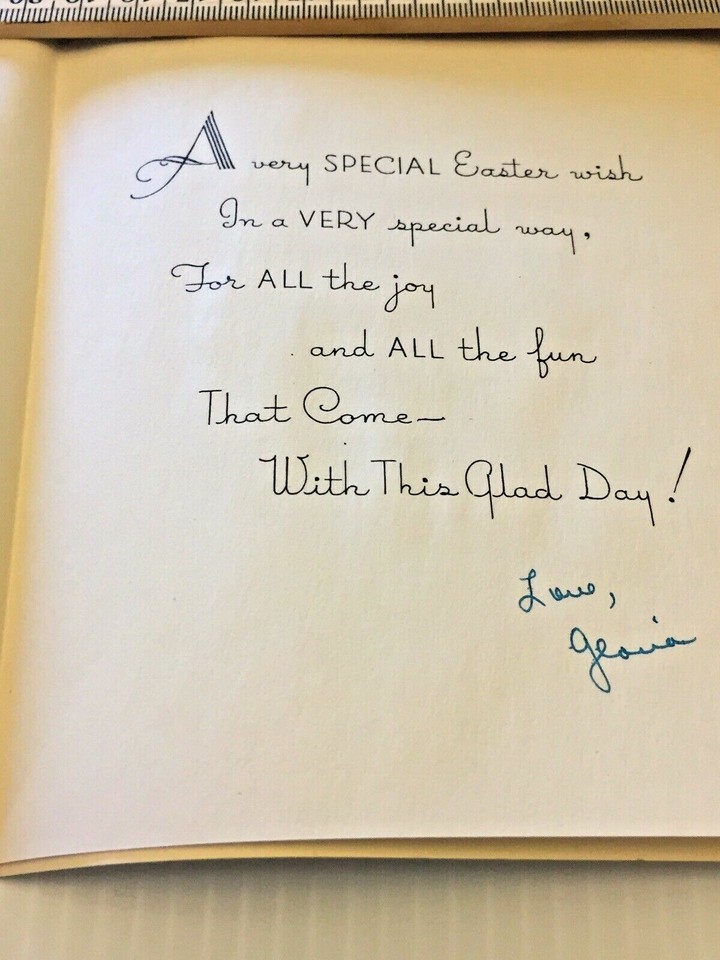 A very SPECIAL Easter wish
In a VERY special way,
For ALL the joy
and ALL the fun
That Come—
With This Glad Day!
Love,
Gloria